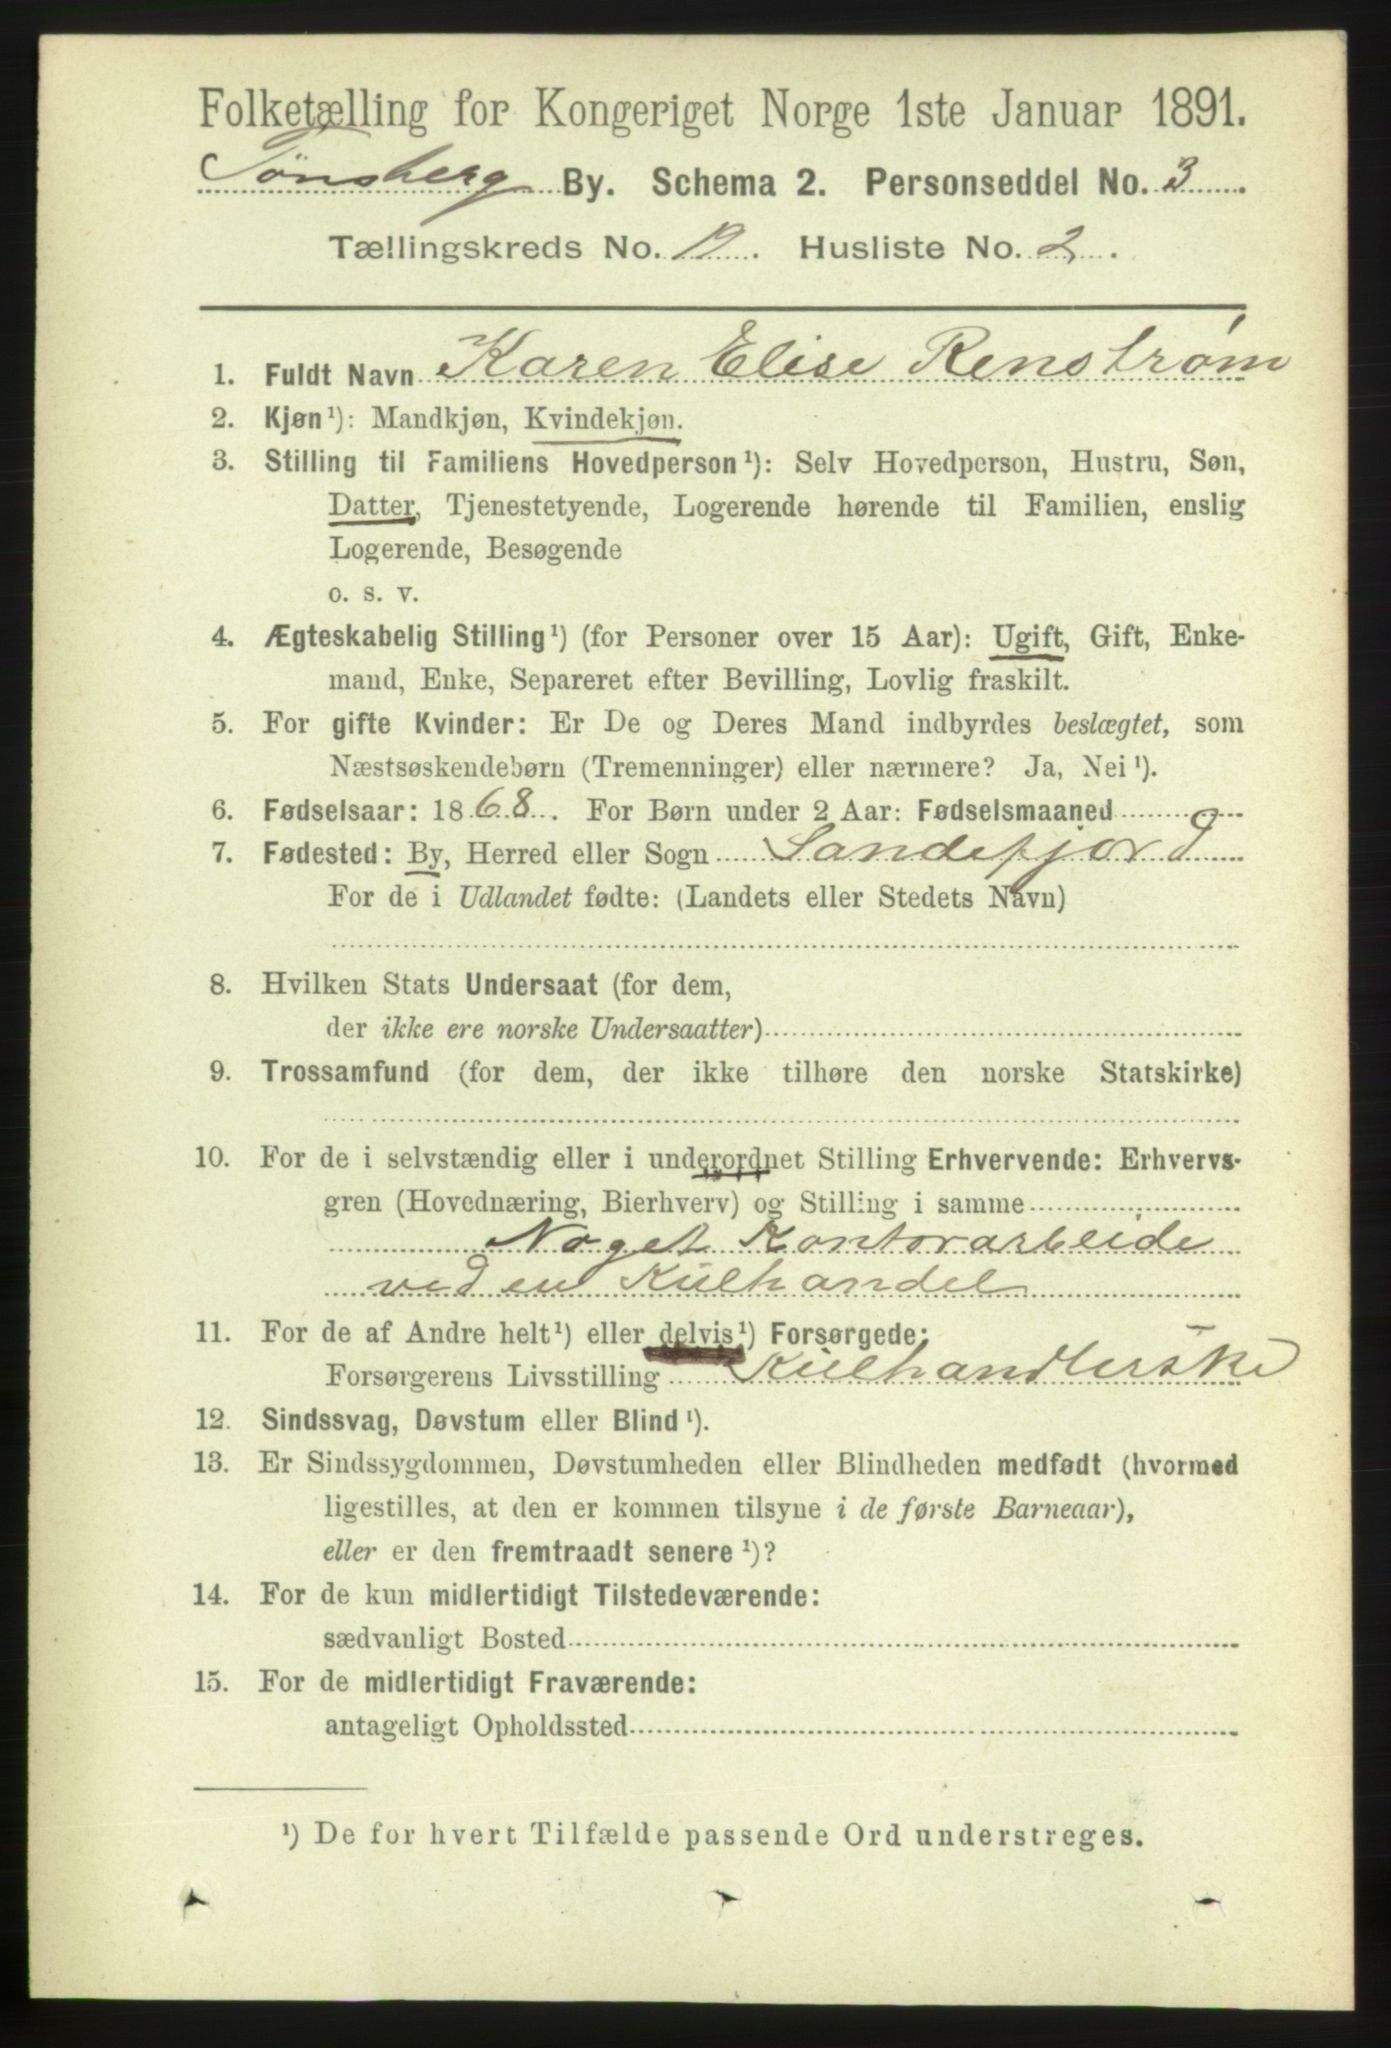 Folketælling for Kongeriget Norge 1ste Januar 1891.
Tønsberg By. Schema 2. Personseddel No. 3.
Tællingskreds No. 12. Husliste No. 2.
1. Fuldt Navn Karen Elise Renstrøm
2. Kjøn ¹): Mandkjøn, Kvindekjøn.
3. Stilling til Familiens Hovedperson ¹): Selv Hovedperson, Hustru, Søn,
Datter, Tjenestetyende, Logerende hørende til Familien, enslig
Logerende, Besøgende
o. s. v.
4. Ægteskabelig Stilling ¹) (for Personer over 15 Aar): Ugift, Gift, Enke-
mand, Enke, Separeret efter Bevilling, Lovlig fraskilt.
5. For gifte Kvinder: Er De og Deres Mand indbyrdes beslægtet, som
Næstsøskendebørn (Tremenninger) eller nærmere? Ja, Nei ¹).
6. Fødselsaar: 1868. For Børn under 2 Aar: Fødselsmaaned
7. Fødested: By, Herred eller Sogn Sandefjord
For de i Udlandet fødte: (Landets eller Stedets Navn)
8. Hvilken Stats Undersaat (for dem,
der ikke ere norske Undersaatter)
9. Trossamfund (for dem, der ikke tilhøre den norske Statskirke)
10. For de i selvstændig eller i underordnet Stilling Erhvervende: Erhvervs-
gren (Hovednæring, Bierhverv) og Stilling i samme
Noget Kontorarbeide
ved en Kulhandel
11. For de af Andre helt ¹) eller delvis ¹) Forsørgede:
Forsørgerens Livsstilling Kulhandlerske
12. Sindssvag, Døvstum eller Blind ¹).
13. Er Sindssygdommen, Døvstumheden eller Blindheden medfødt (hvormed
ligestilles, at den er kommen tilsyne i de første Barneaar),
eller er den fremtraadt senere ¹)?
14. For de kun midlertidigt Tilstedeværende:
sædvanligt Bosted
15. For de midlertidigt Fraværende:
antageligt Opholdssted
¹) De for hvert Tilfælde passende Ord understreges.